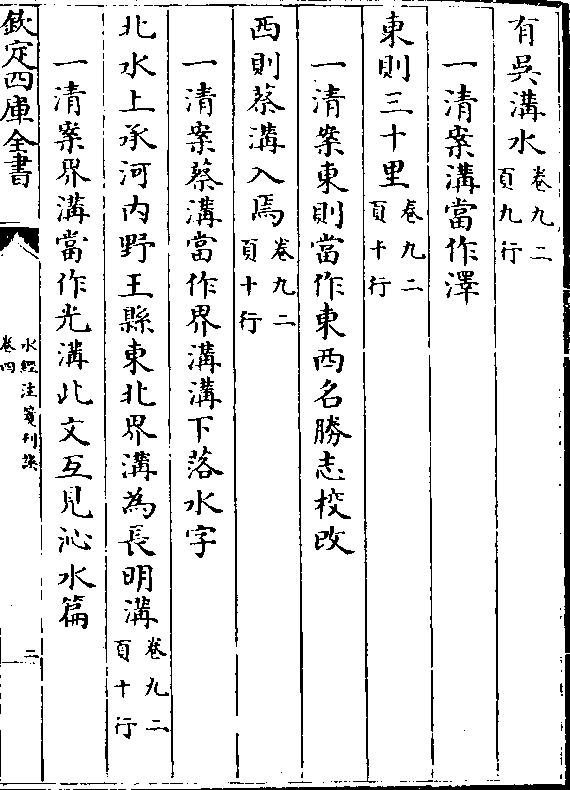 有吳溝水卷九二頁九行
一清案溝當作澤
東則三十里卷九二頁十行
一清案東則當作東西名勝志校改
西則蔡溝入焉卷九二頁十行
一清案蔡溝當作界溝溝下落水字
北水上承河内野王縣東北界溝為長明溝卷九二頁十行
一清案界溝當作光溝此文互見沁水篇
欽定四庫全書
水經注箋刊誤
卷四
二